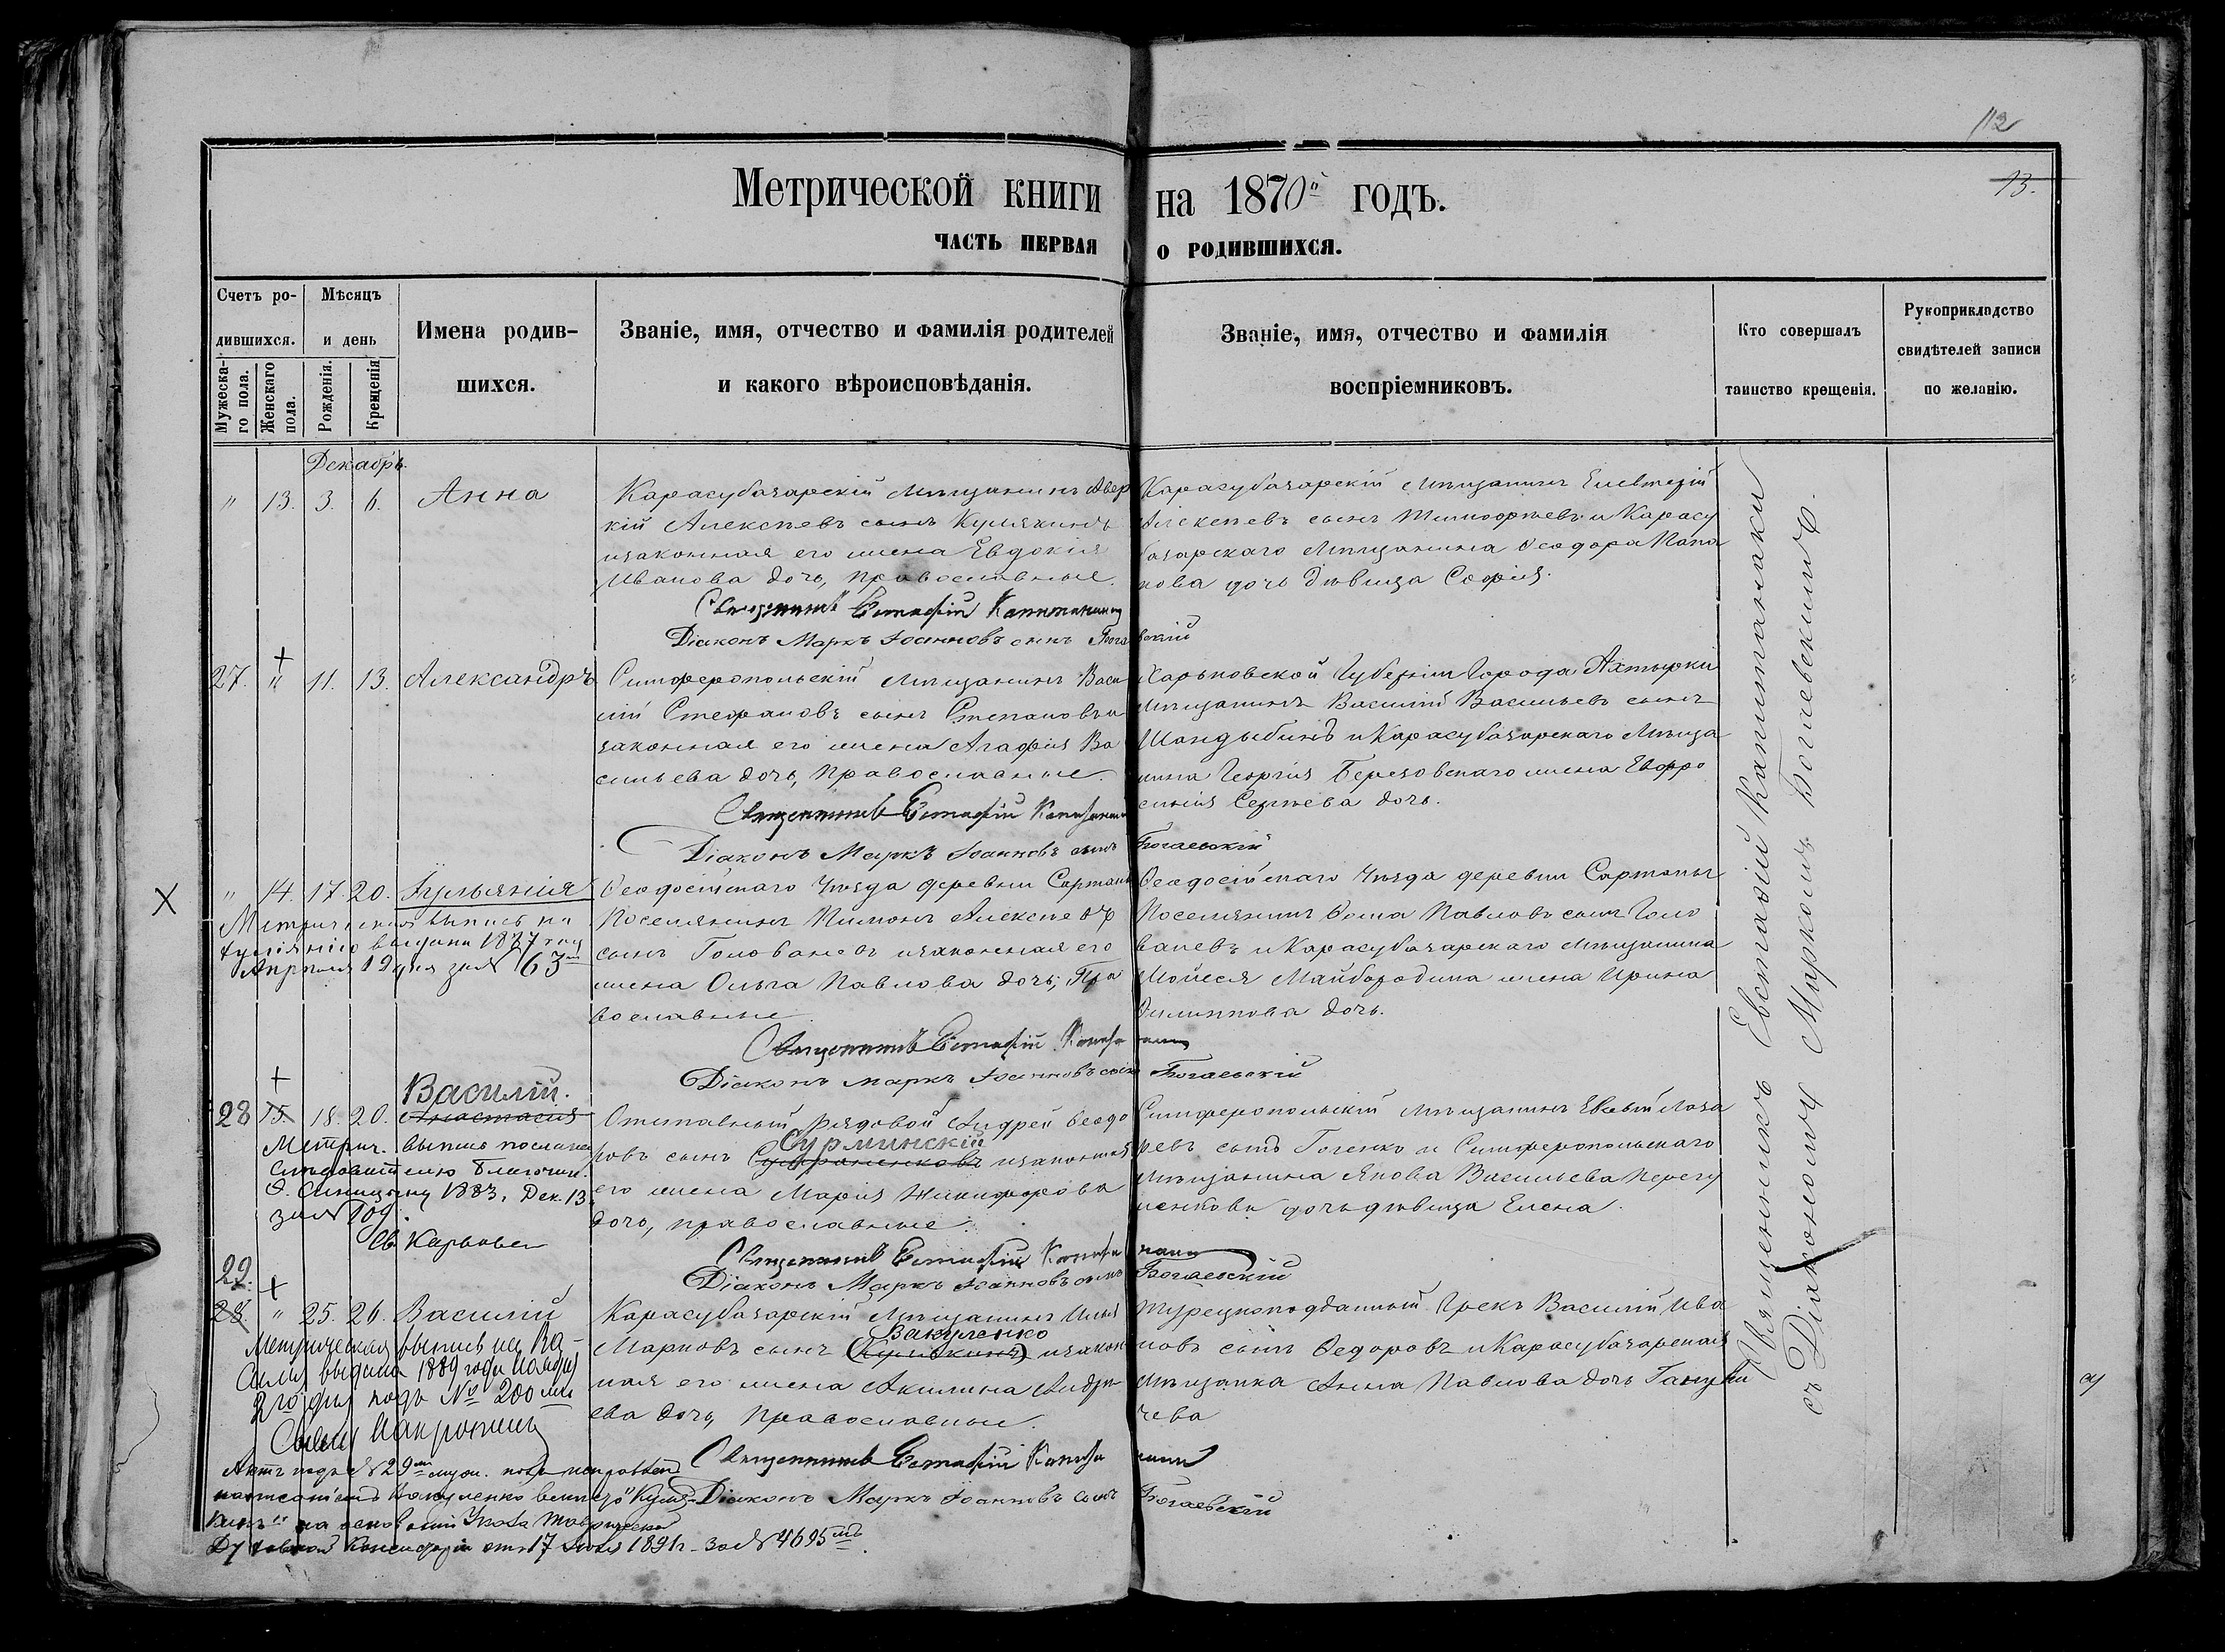 112
13.
Метрической книги на 1870й годъ.
часть первая о родившихся.
Счетъ родившихся.
Мужескаго пола.
Женскаго пола.
Мѣсяцъ и день
Рожденія.
Крещенія
Имена родившихся.
Званіе, имя, отчество и фамилія родителей
и какого вѣроисповѣданія.
Званіе, имя, отчество и фамилія
воспріемниковъ.
Кто совершалъ
таинство крещенія.
Рукоприкладство
свидѣтелей записи
по желанію.
Декабрь.
" 13. 3. 6. Анна
Карасубазарскій Мѣщанинъ Авер
кій Алексѣевъ сынъ Кулякинъ
изаконная его жена Евдокія
Иванова дочь, православные.
Карасубазарскій Мѣщанинъ Елевтерій
Алексѣевъ сынъ Тимофѣевъ и Карасу
базарскаго Мѣщанина Ѳеодора Попа
нова дочь дѣвица Софія.
Священникъ Евстафій Капитанаки
Діаконъ Маркъ Іоанновъ сынъ Богаевскій
27. " 11. 13. Александръ
Симферопольскій Мѣщанинъ Васи
лій Стефановъ сынъ Степановъ и
законная его жена Агафія Ва
сильева дочь, Православные.
Харьковской Губерніи Города Ахтырки
Мѣщанинъ Василій Васильевъ сынъ
Шандыбинъ и Карасубазарскаго Мѣща
нина Георгія Березовскаго жена Евфро
синія Сергѣева дочь.
Священникъ Евстафій Капитанаки
Діаконъ Маркъ Іоанновъ сынъ Богаевскій
X
" 14. 17. 20. Іульянія
Метрическая выпись на
Іуліянію выдана 1887 год
Апрѣля 19 дня за № 63
Ѳеодосійскаго Уѣзда деревни Сартаны
Поселянинъ Пименъ Алексѣевъ
сынъ Голованевъ изаконная его
жена Ольга Павлова дочь, Пра
вославные.
Ѳеодосійскаго Уѣзда деревни Сартаны
Поселянинъ Ѳома Павловъ сынъ Голо
ваневъ и Карасубазарскаго Мѣщанина
Мойсея Майбородина жена Ирина
Филиппова дочь.
Священникъ Евстафій Капитанаки
Діаконъ Маркъ Іоанновъ сынъ Богаевскій
Василій.
28 15. 18. 20. Анастасія
Метрич. выпись послана
слѣдователю Благочин.
О. Синицыну 1883, Дек. 13
за № 109.
Св. Карповъ
Отставный рядовой Андрей Ѳеодо
Сурминскій
ровъ сынъ изаконная
его жена Марія Никифорова
дочь, православные.
Симферопольскій Мѣщанинъ Евсѣй Лаза
ревъ сынъ Гогенко и Симферопольскаго
Мѣщанина Якова Васильева
дочь дѣвица Елена.
Священникъ Евстафій Капитанаки
Діаконъ Маркъ Іоанновъ сынъ Богаевскій
29.
28. " 25. 26. Василій
Метрическая выпись на Ва-
силія выдана 1889 года
2го дня подъ № 200мъ
Карасубазарскій Мѣщанинъ Илья
Вакуленко
Марковъ сынъ (Кулякинъ) изакон
ная его жена Акилина Андре
ева дочь, Православные.
Турецкоподданный Грекъ Василій Ива
новъ сынъ Ѳедоровъ и Карасубазарская
Мѣщанка Анна Павлова дочь
чева
Священникъ Евстафій Капитанаки
Діаконъ Маркъ Іоанновъ сынъ Богаевскій
Актъ подъ № 29мъ
написаніемъ Вакуленко вмѣсто "Куля-
кинъ" на основаніи Указа Таврической
Духовной Консисторіи отъ 17 Іюля 1891 г. за № 4695мъ.
Священникъ Евстафій Капитанаки
съ Діакономъ Маркомъ Богаевскимъ.